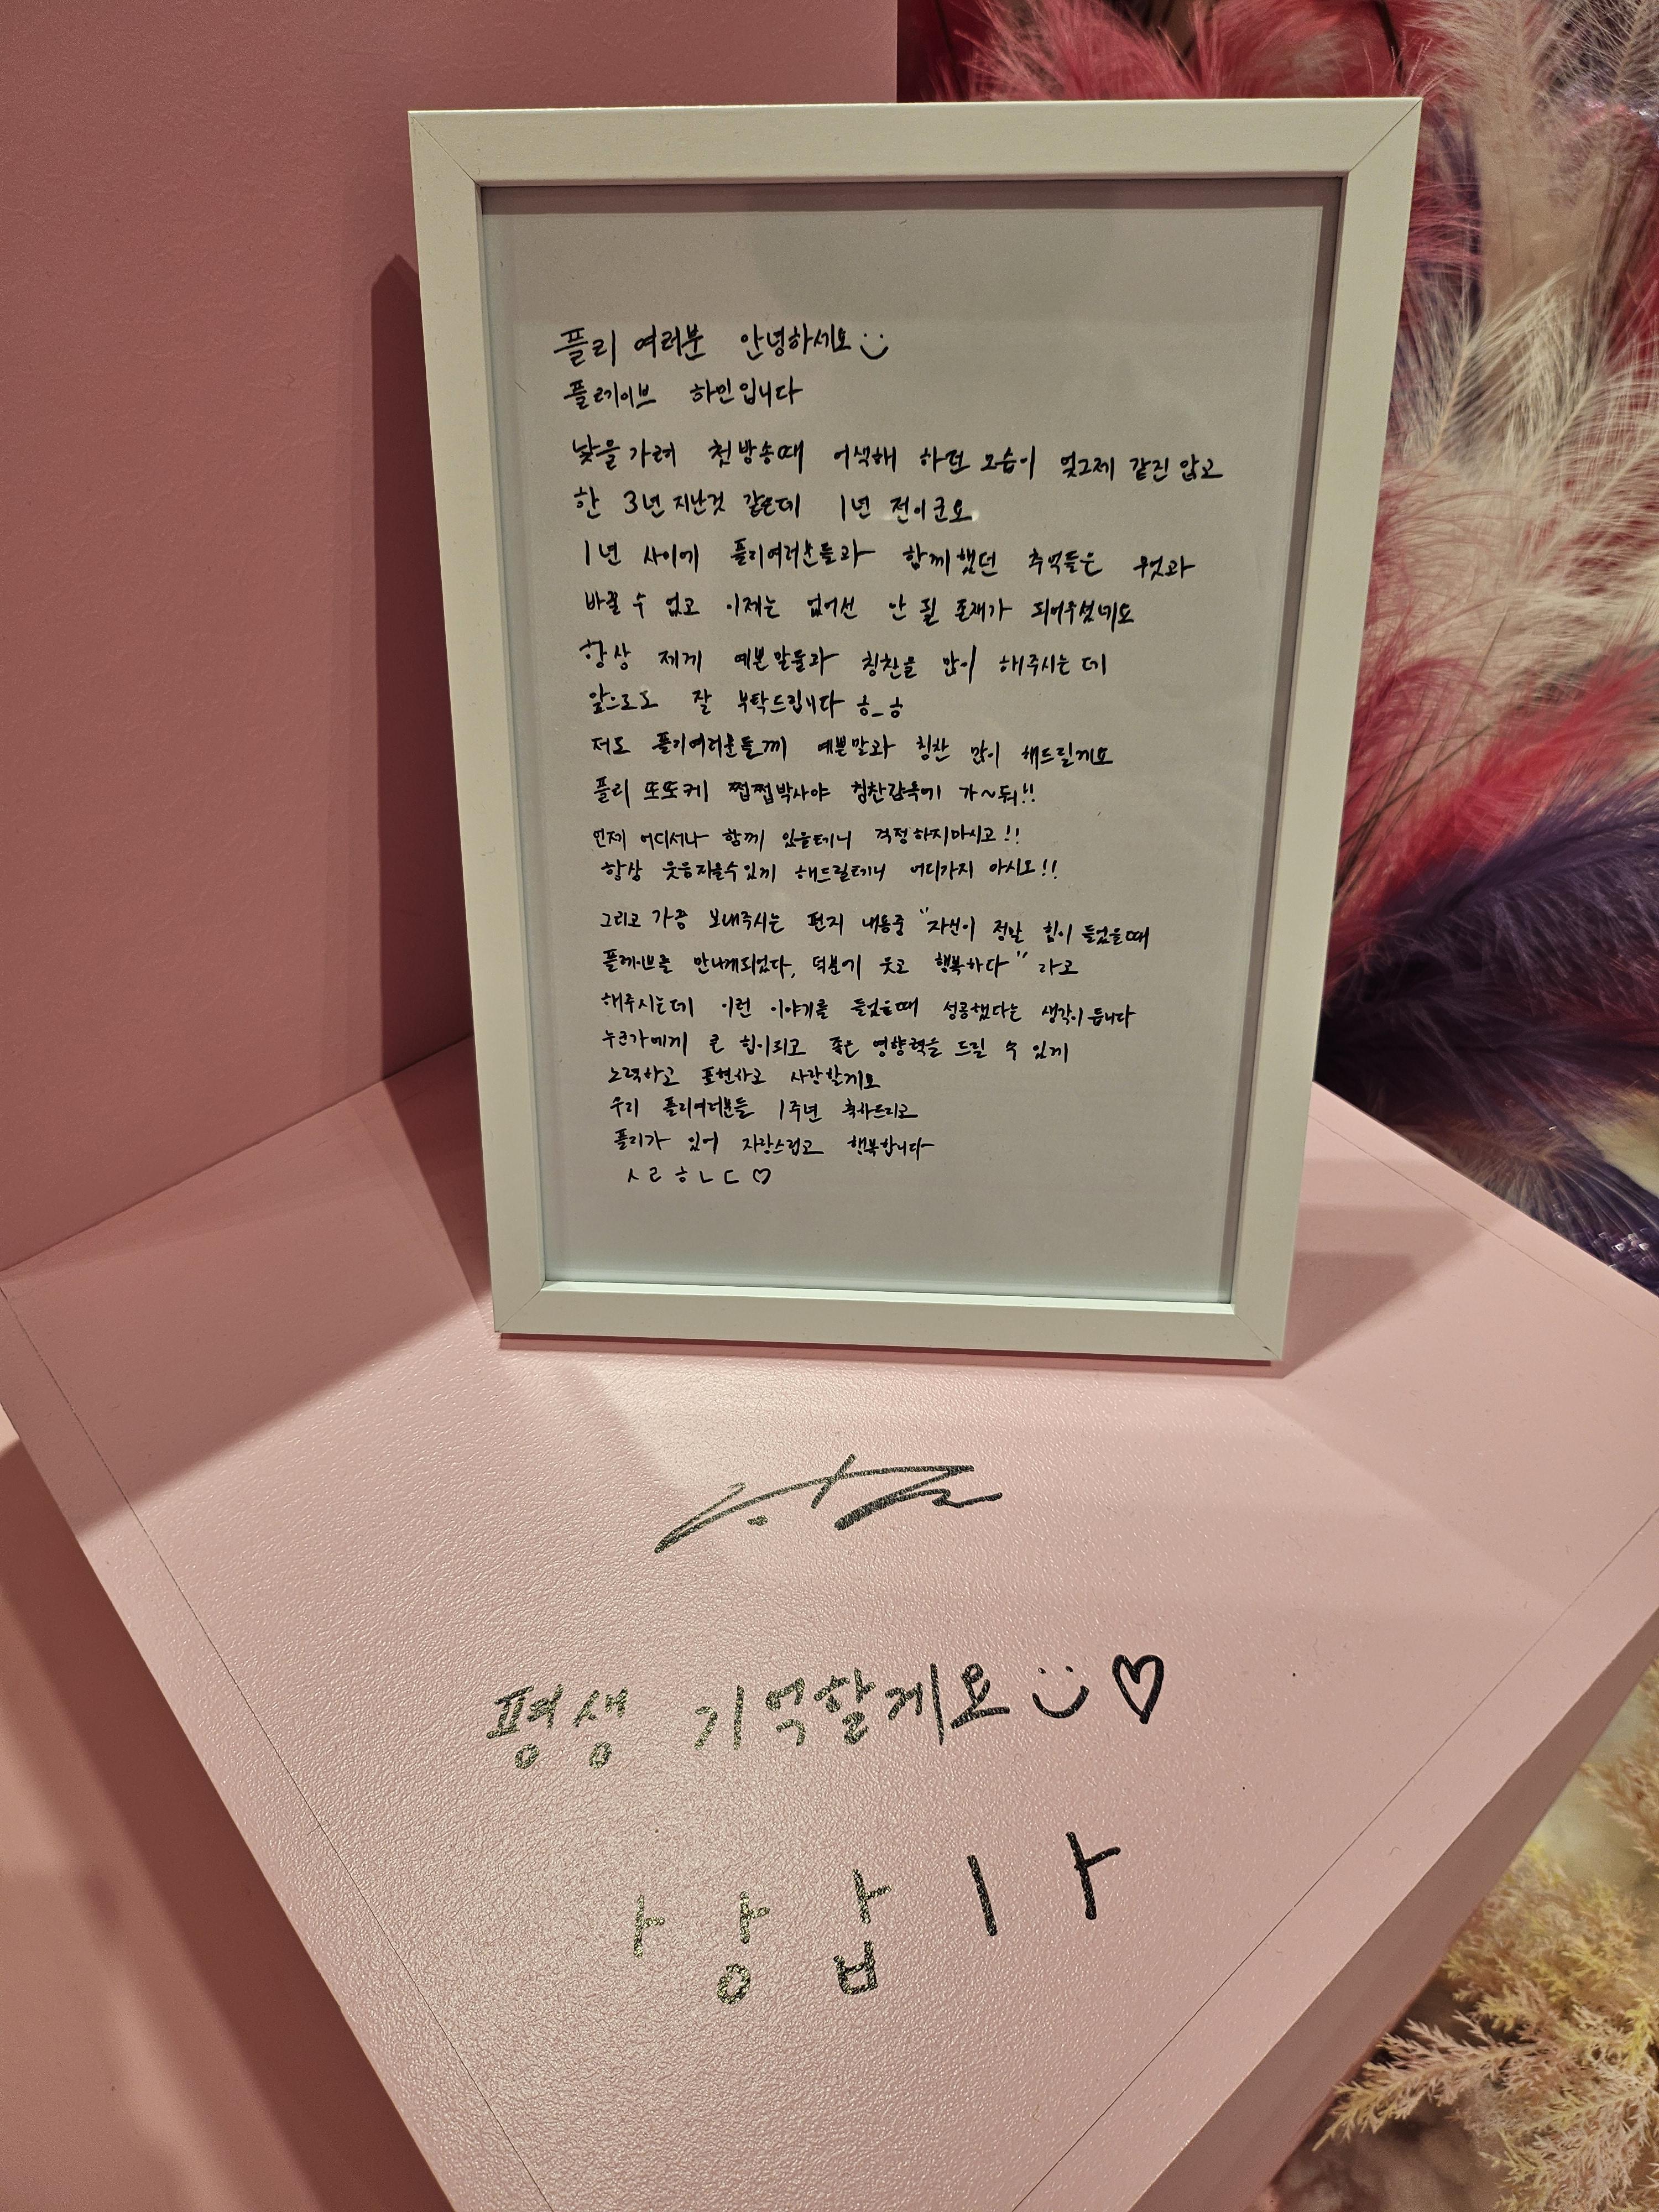 플리 여러분 안녕하세요
플레이브 하민입니다
낯을 가려 첫 방송때 어색해 하던 모습이 엊그제 같진 않고
한 3년 지난것 같은데 1년 전이군요
1년 사이에 플리여러분들과 함께했던 추억들은 무엇과
바꿀 수 없고 이제는 없어선 안 될 존재가 되어주셨네요
항상 제게 예쁜말들과 칭찬을 많이 해주시는 데
앞으로도 잘 부탁드립니다 ㅎ_ㅎ
저도 플리여러분들께 예쁜말과 칭찬 많이 해드릴게요
플리 또또케 쩝쩝박사야 칭찬감옥에 가~둬!!
언제 어디서나 함께 있을테니 걱정하지마시고!!
항상 웃음지을수있게 해드릴테니 어디가지 마시오!!
그리고 가끔 보내주시는 편지 내용중 "자신이 정말 힘이 들었을때
플레이브를 만나게되었다, 덕분에 웃고 행복하다" 라고
해주시는데 이런 이야기를 들었을때 성공했다는 생각이 듭니다
누군가에게 큰 힘이되고 좋은 영향력을 드릴 수 있게
노력하고 표현하고 사랑할게요
우리 플리여러분들 1주년 축하드리고
플리가 있어 자랑스럽고 행복합니다
ㅅㄹㅎㄴㄷ♡
평생 기억할게요 ♡
ㅏ ㅏㅇ ㅏㅂ ㅣ ㅏ